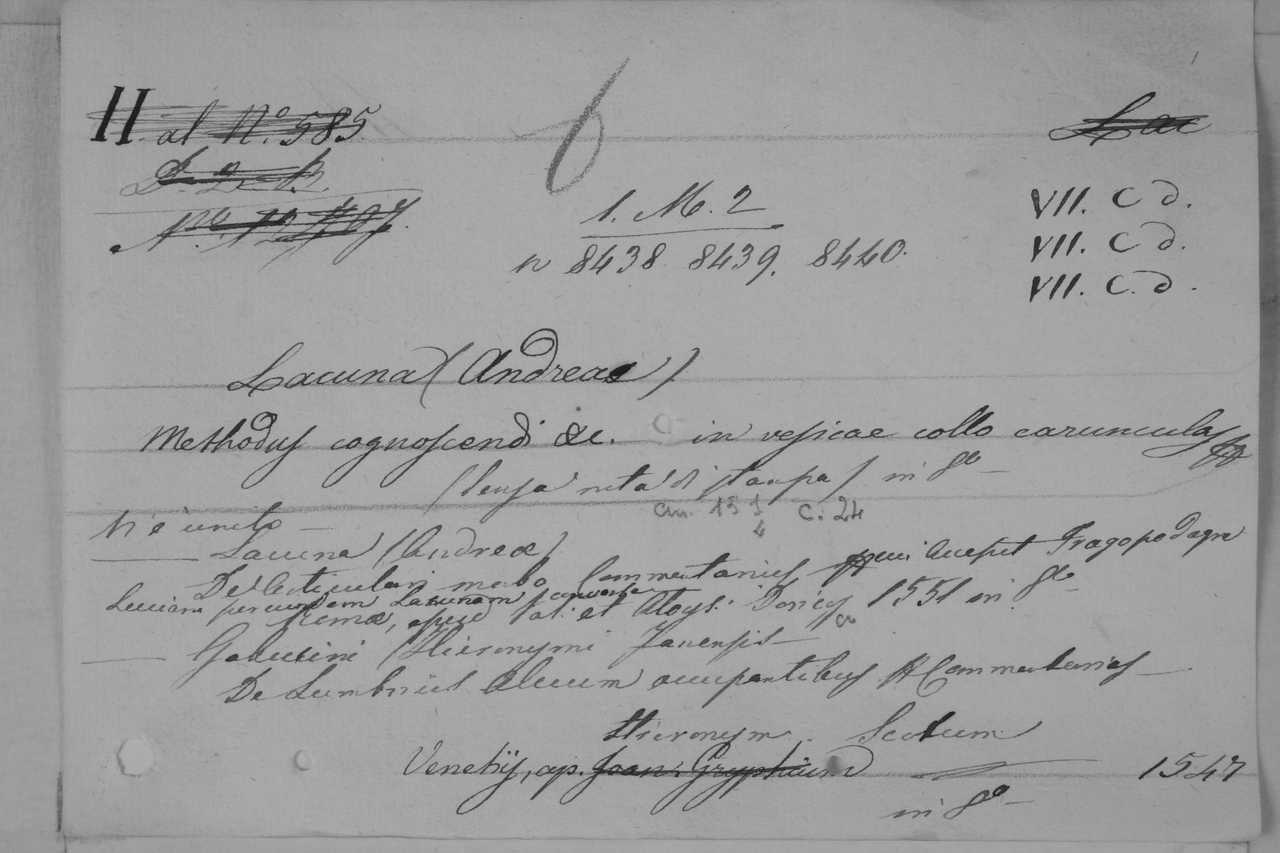 H al N.º 585
6
Lac
D. 2. B.
1. M. 2
VII. C d.
n 8438 8439. 8440.
VII. C d.
VII. C. d.
Lacuna (Andreae)
Methodus cognoscendi &c. in vesicae collo carunculas
(senza nota di stampa) in 8º
cm. 15 1/4 c. 24
V'è unito
Lacuna (Andreæ)
De Articulari morbo Commentarius cui accepit Tragopodagra
Luciani per eundem Lacunam conversa
Romæ, apud Val. et Aloys. Doricos 1551 in 8º
Gabucini Hieronymi Fanensis
De Lumbricis Alvum occupantibus Commentarius
Hieronym. Scotum
Venetijs, ap. Joan. Gryphium 1547
in 8º